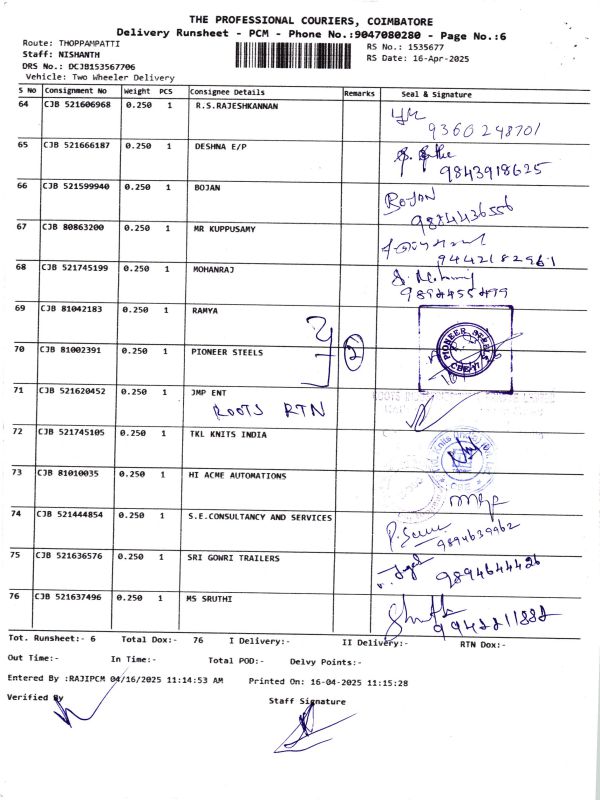 THE PROFESSIONAL COURIERS, COIMBATORE
Delivery Runsheet - PCM - Phone No.:9047080280 - Page No.:6
Route: THOPPAMPATTI
Staff: NISHANTH
DRS No.: DCJB153567706
Vehicle: Two Wheeler Delivery
RS No.: 1535677
RS Date: 16-Apr-2025
S No Consignment No Weight PCS Consignee Details Remarks Seal & Signature
64 CJB 521606968 0.250 1 R.S.RAJESHKANNAN
9360248701
65 CJB 521666187 0.250 1 DESHNA E/P
9843918625
66 CJB 521599940 0.250 1 BOJAN
BOJAN
9884436556
67 CJB 80863200 0.250 1 MR KUPPUSAMY
9442182961
68 CJB 521745199 0.250 1 MOHANRAJ
69 CJB 81042183 0.250 1 RAMYA
70 CJB 81002391 0.250 1 PIONEER STEELS
2
PIONEER STEELS
71 CJB 521620452 0.250 1 JMP ENT
ROOTS RTN
72 CJB 521745105 0.250 1 TKL KNITS INDIA
73 CJB 81010035 0.250 1 HI ACME AUTOMATIONS
74 CJB 521444854 0.250 1 S.E.CONSULTANCY AND SERVICES
9894639962
75 CJB 521636576 0.250 1 SRI GOWRI TRAILERS
9894644426
76 CJB 521637496 0.250 1 MS SRUTHI
Tot. Runsheet:- 6 Total Dox:- 76 I Delivery:- II Delivery:- RTN Dox:-
Out Time:- In Time:- Total POD:- Delvy Points:-
Entered By :RAJIPCM 04/16/2025 11:14:53 AM Printed On: 16-04-2025 11:15:28
Verified By Staff Signature